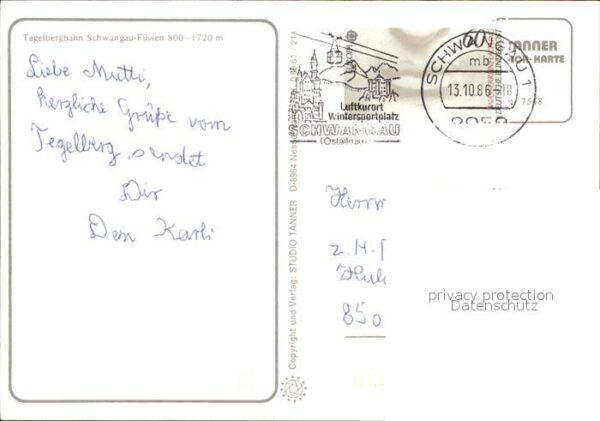 Tegelbergbahn Schwangau-Füssen 800—1720 m
Liebe Mutti,
herzliche Grüße vom
Tegelberg sendet
Dir
Dein Karli
Copyright und Verlag: STUDIO TANNER D-8964 Nes
Luftkurort
Wintersportplatz
SCHWANGAU
(Ostallgäu)
60
SCHWANGAU 1
mb
13.10.86
8959
DEUTSCHE BUNDESPOST
TANNER
KARTE
Herrn
z. H.
850
privacy protection
Datenschutz